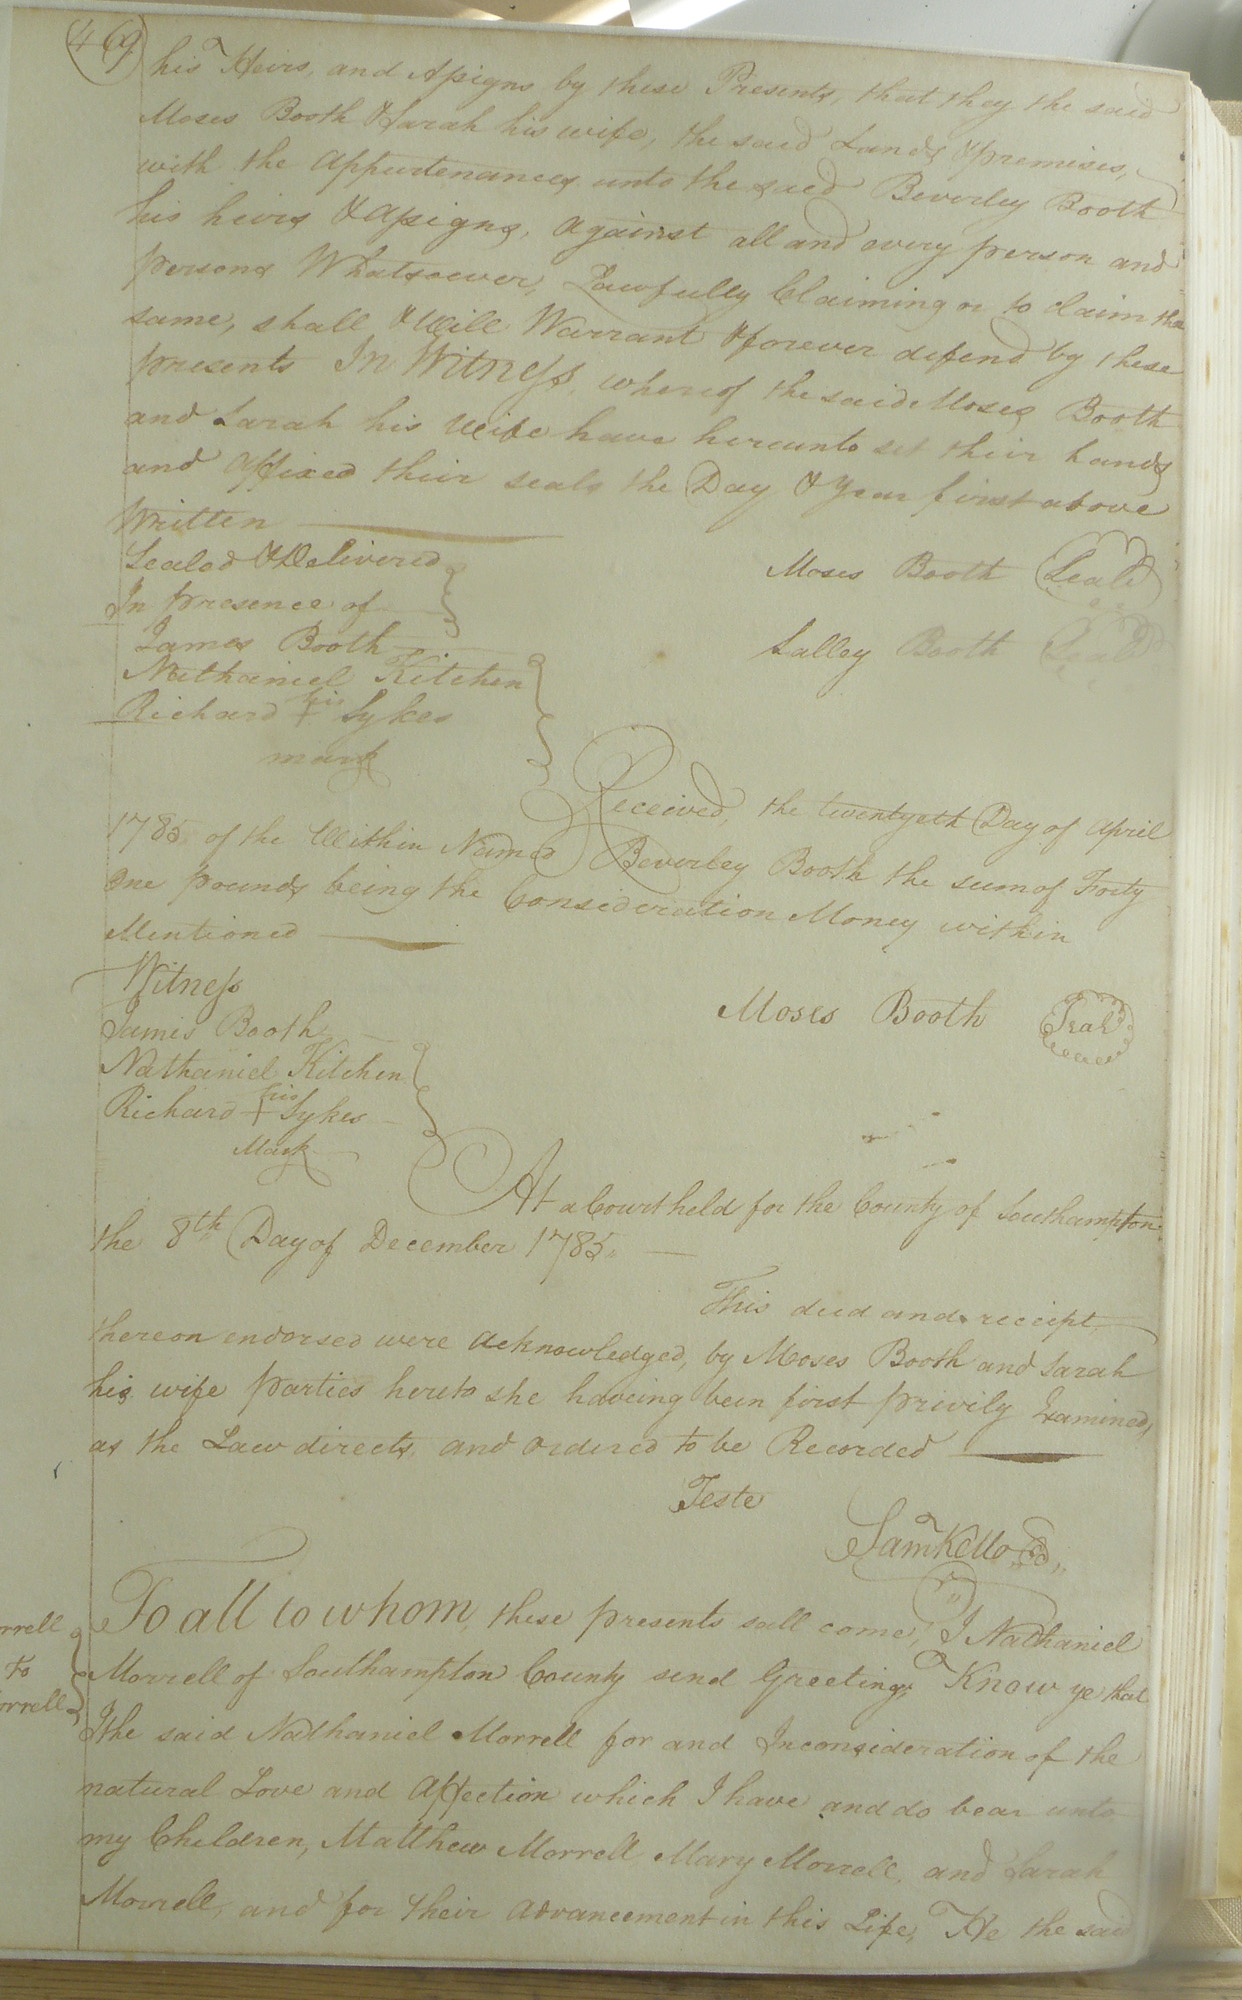 469
his Heirs, and Assigns by these Presents, that they the said
Moses Booth & Sarah his wife, the said Lands & premises,
with the Appurtenances unto the said Beverley Booth
his heirs & Assigns, Against all and every person and
persons Whatsoever, Lawfully Claiming or to claim the
same, shall & Will Warrant & forever defend by these
presents In Witness, whereof the said Moses Booth
and Sarah his Wife have hereunto set their hands
and Affixed their seals the Day & Year first above
Written
Sealed & Delivered
In presence of
James Booth
Nathaniel Kitchen
Richard his + Sykes
mark
Moses Booth Seal
Salley Booth Seal
Received, the twentyeth Day of April
1785 of the Within Named Beverley Booth the sum of Forty
One pounds being the Consideration Money within
Mentioned
Witness
James Booth
Nathaniel Kitchen
Richard his + Sykes
Mark
Moses Booth Seal
At a Court held for the County of Southampton
the 8th Day of December 1785
This deed and receipt
thereon endorsed were acknowledged, by Moses Booth and Sarah
his wife parties hereto she haveing been first privily Examined,
as the Law directs, and ordered to be Recorded
Teste
Saml Kello
To all to whom, these presents sall come, I Nathaniel
Morrell of Southampton County send Greeting, Know ye that
I the said Nathaniel Morrell for and Inconsideration of the
natural Love and Affection which I have and do bear unto
my Children, Matthew Morrell Mary Morrell, and Sarah
Morrell, and for their advancement in this Life, He the said
rrell
To
orrell